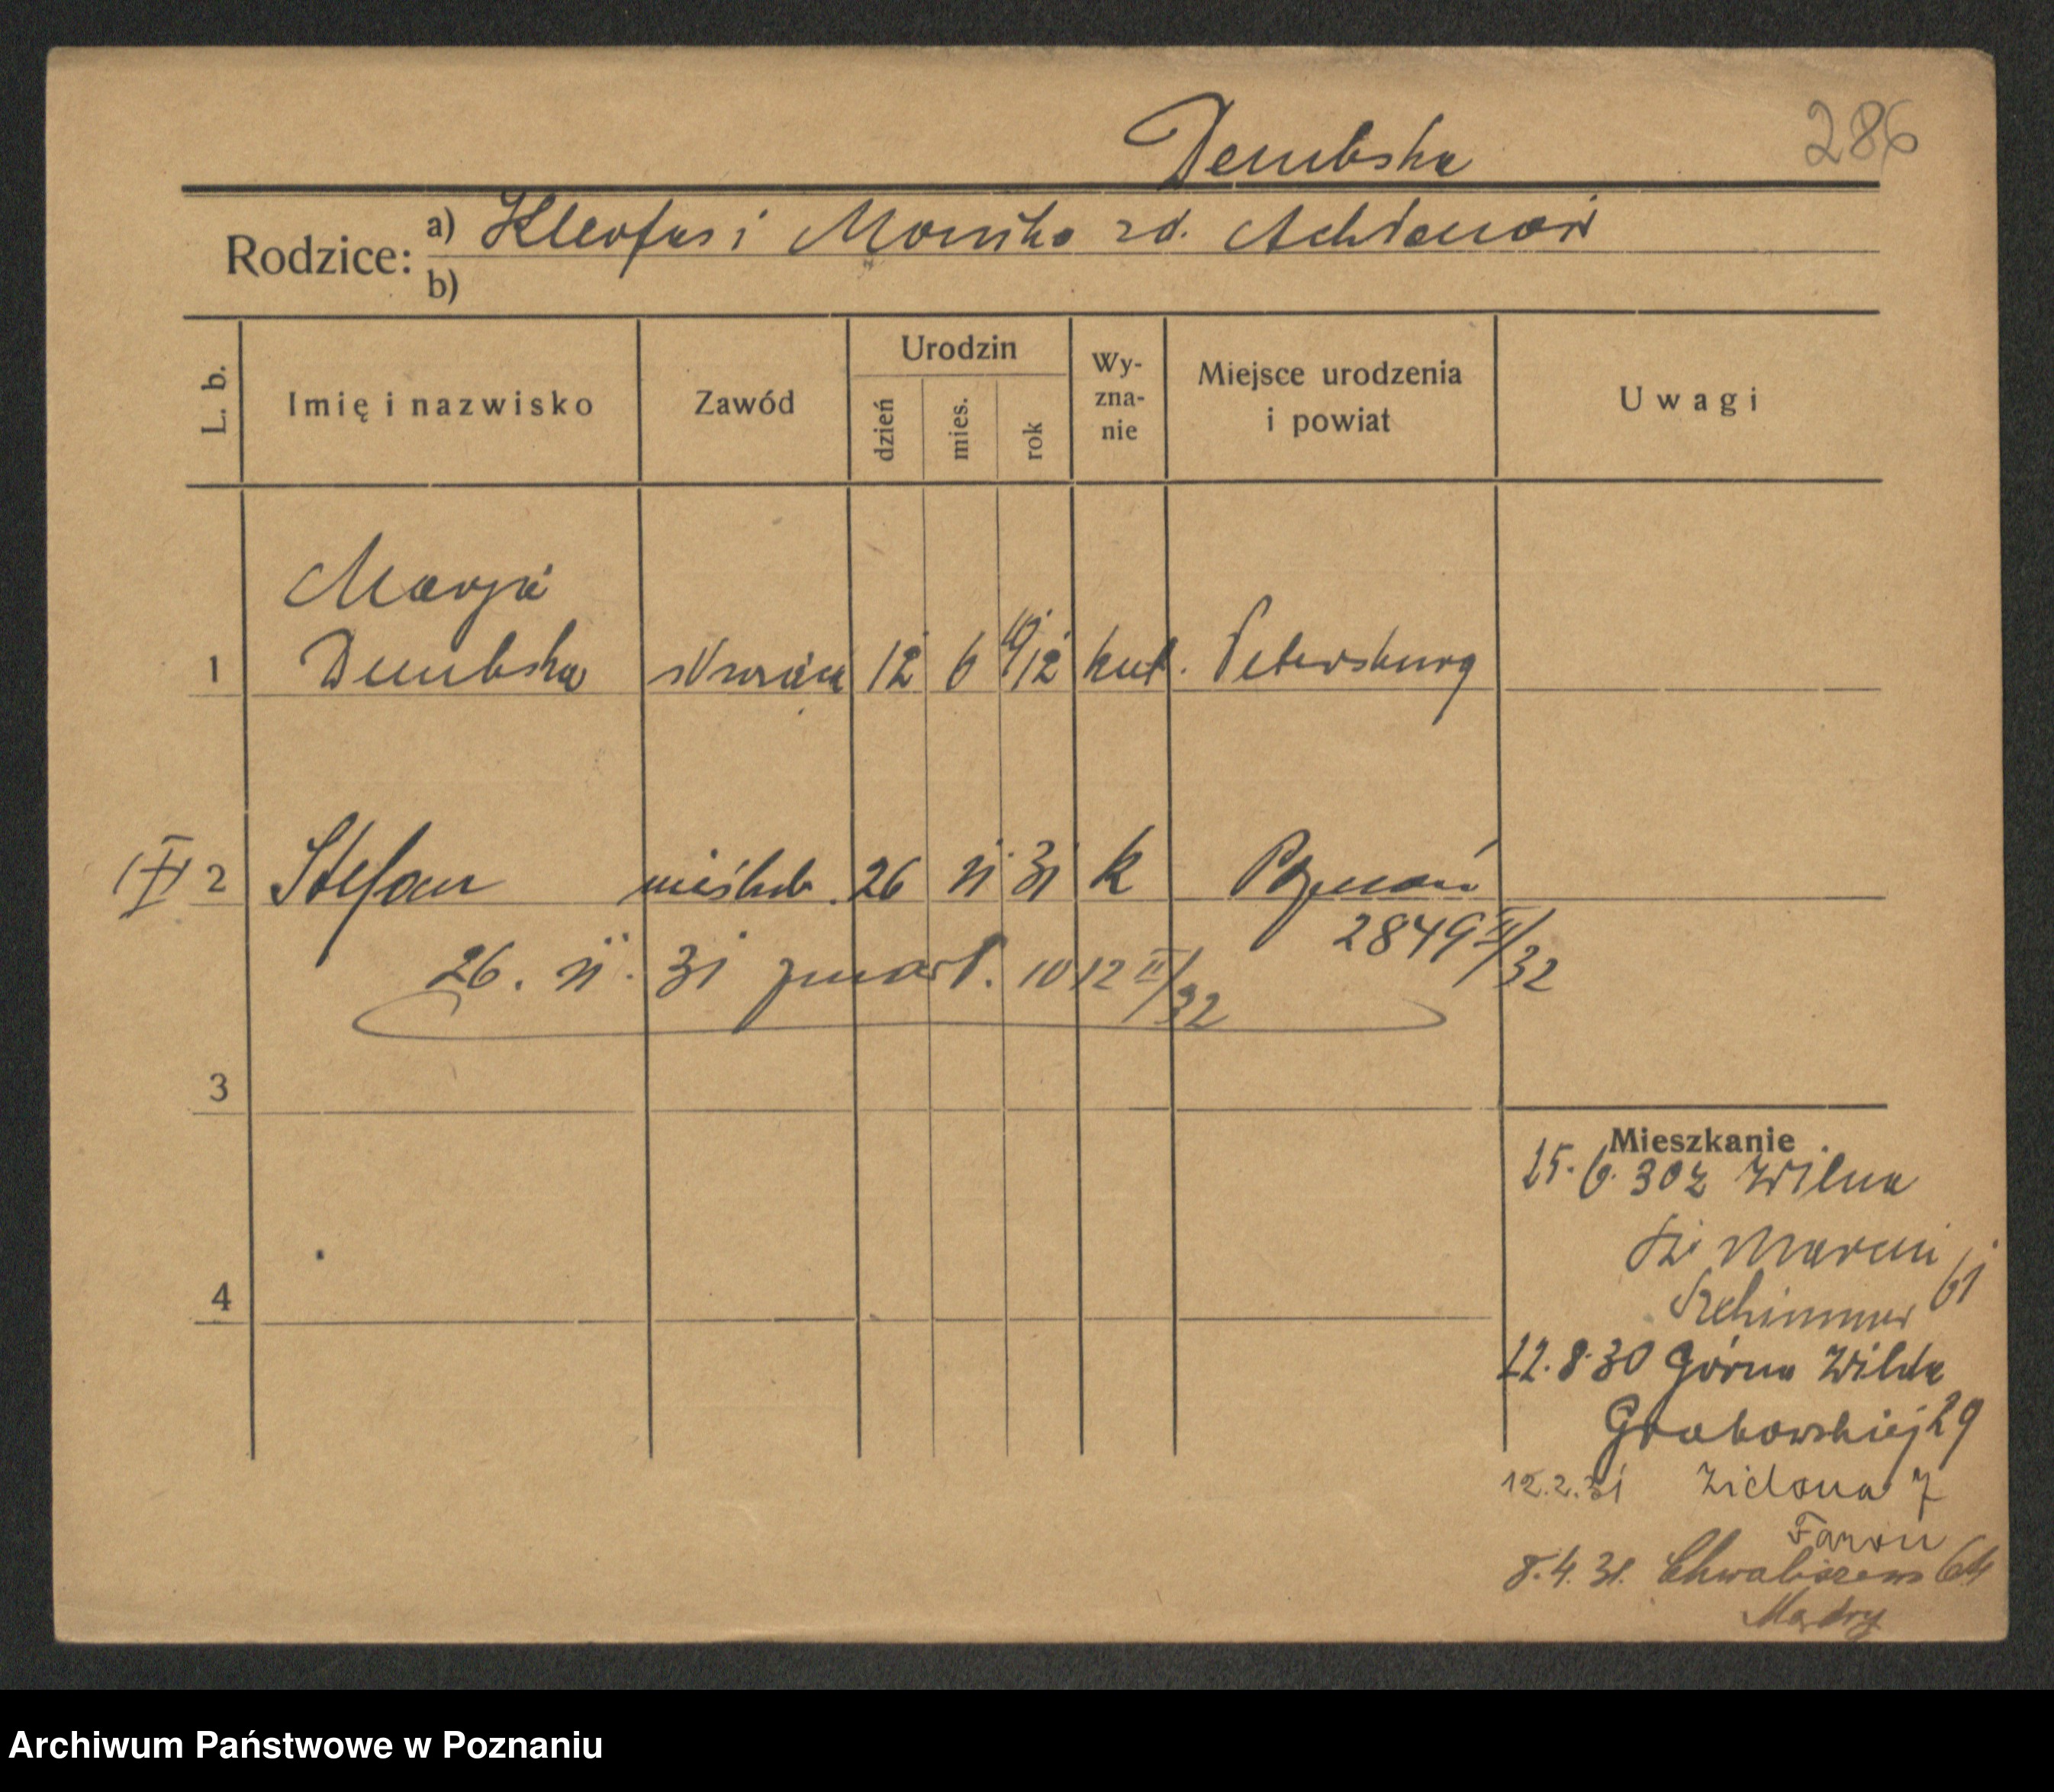 286
Dembska
Rodzice: a) Kleofas i Monika zd.
b)
L. b. Imię i nazwisko Zawód Urodzin dzień mies. rok Wy-zna-nie Miejsce urodzenia i powiat Uwagi
Marja
1 Dembska 12 6 12 kat. Petersburg
2 Stefan nieślub. 26 XI 31 k Poznań
2849 II/32
26. XI. 31 zmarł. 1012 II/32
3
Mieszkanie
15. 6. 30 z Wilna
Św Marcin 61
4
22. 8. 30 Górna Wilda
Grabowskiej 29
12.2.31 Zielona 7
8.4.31. Chwaliszewo 64
Mądry
Archiwum Państwowe w Poznaniu